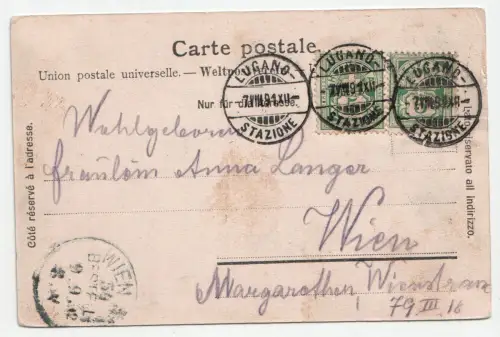 Carte postale.
Union postale universelle. — Weltpos
Nur für die Adresse.
LUGANO
STAZIONE
LUGANO
STAZIONE
LUGANO
STAZIONE
Côté réservé à l'adresse.
riservato all indirizzo.
Wohlgeboren
Fräulöin Anna Langer
Wien
Margarethen, Wienstrasse
79 III 16
WIEN